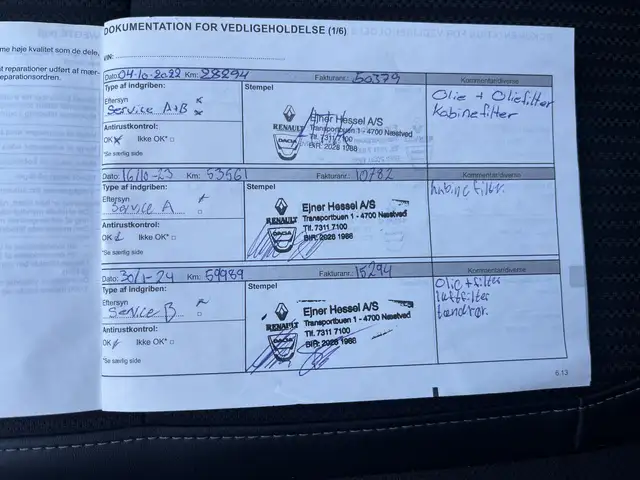 DOKUMENTATION FOR VEDLIGEHOLDELSE (1/6)
me høje kvalitet som de dele,
t reparationer udført af mær-
eparationsordren.
VIN:
Dato: 04-10-2022 Km: 28294 Fakturanr.: 50379 Kommentar/diverse
Type af indgriben: Stempel
Eftersyn
Service A+B
Antirustkontrol:
OK Ikke OK*
*Se særlig side
RENAULT
DACIA
Ejner Hessel A/S
Transportbuen 1 - 4700 Næstved
Tlf. 7311 7100
BIR. 2028 1988
Olie + Oliefilter
Kabinefilter
Dato: 16/10-23 Km: 53561 Fakturanr.: 10782 Kommentar/diverse
Type af indgriben: Stempel
Eftersyn
Service A
Antirustkontrol:
OK Ikke OK*
*Se særlig side
RENAULT
DACIA
Ejner Hessel A/S
Transportbuen 1 - 4700 Næstved
Tlf. 7311 7100
BIR. 2028 1988
kabinefilter.
Dato: 30/1-24 Km: 59989 Fakturanr.: 15294 Kommentar/diverse
Type af indgriben: Stempel
Eftersyn
Service B
Antirustkontrol:
OK Ikke OK*
*Se særlig side
RENAULT
DACIA
Ejner Hessel A/S
Transportbuen 1 - 4700 Næstved
Tlf. 7311 7100
BIR. 2028 1988
Olie + filter
luftfilter
tændrør.
6.13